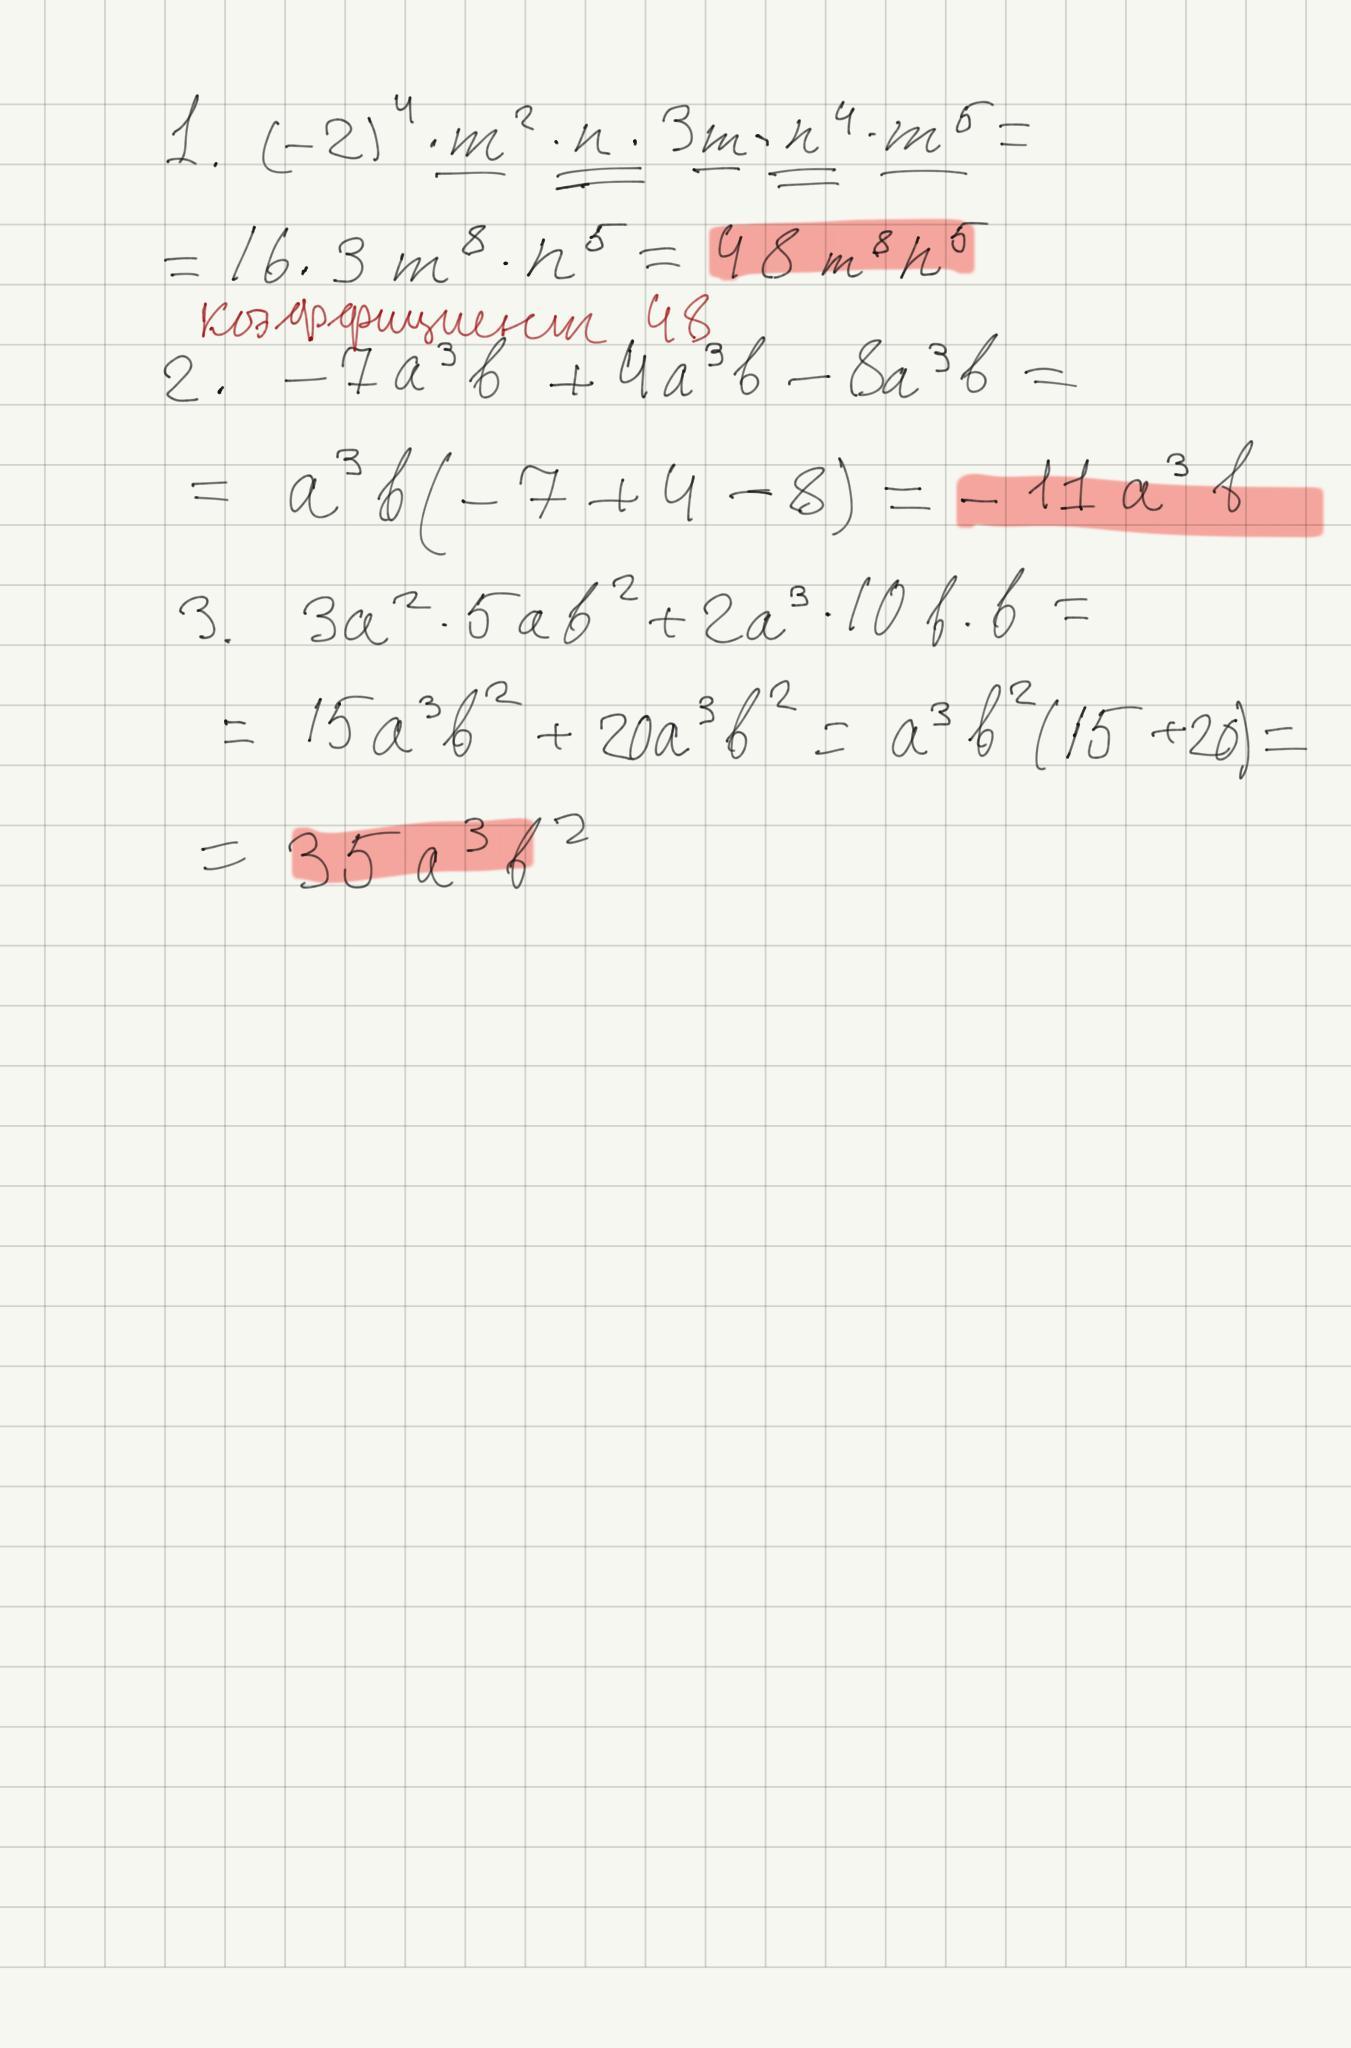 1. (-2)⁴ · m² · n · 3m · n⁴ · m⁵ =
= 16 · 3 m⁸ · n⁵ = 48 m⁸n⁵
коэффициент 48
2. -7a³b + 4a³b - 8a³b =
= a³b(-7 + 4 - 8) = -11a³b
3. 3a² · 5ab² + 2a³ · 10b · b =
= 15a³b² + 20a³b² = a³b²(15 + 20) =
= 35a³b²